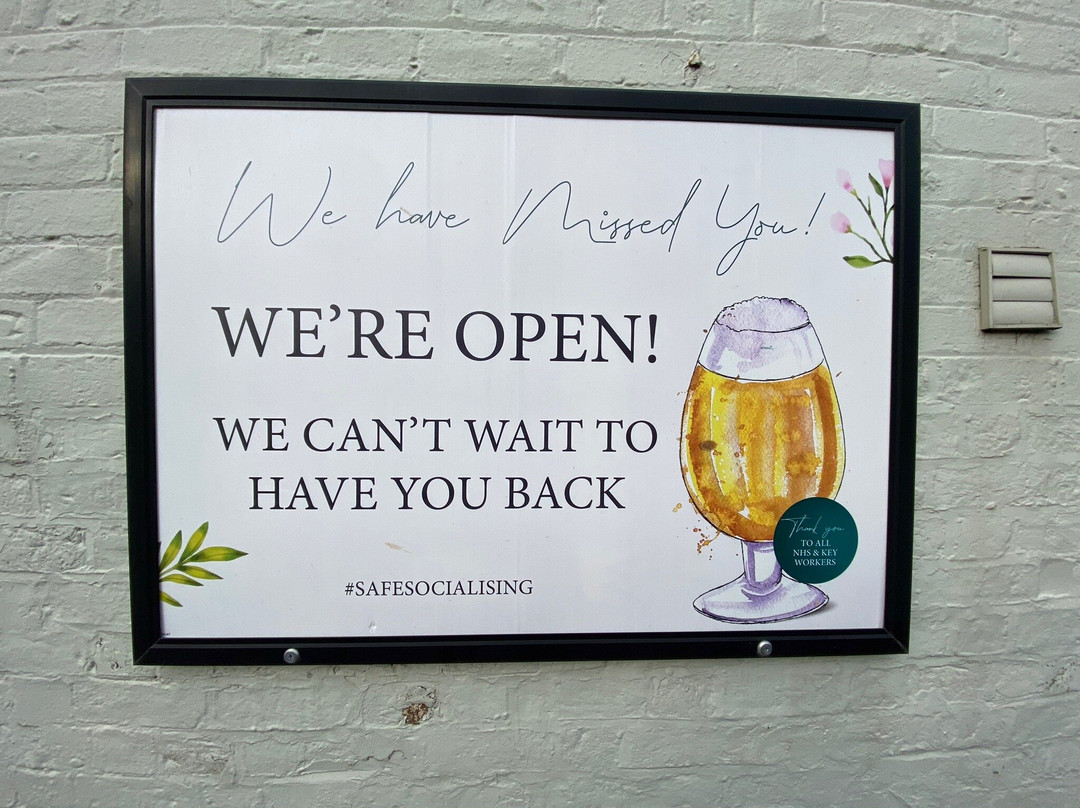 We have Missed You!
WE'RE OPEN!
WE CAN'T WAIT TO
HAVE YOU BACK
#SAFESOCIALISING
Thank you
TO ALL
NHS & KEY
WORKERS